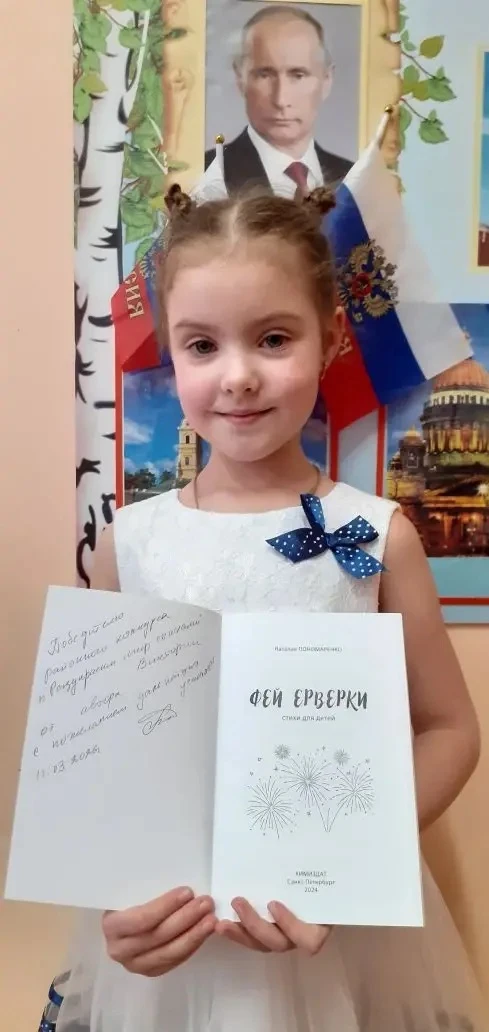 Победителю
районного конкурса
"Разукрасим мир стихами"
Виктории
от автора
с пожеланием дальнейших
успехов
11.03.2026
Наталия ПОНОМАРЕНКО
ФЕЙ ЕРВЕРКИ
стихи для детей
ХИМИЗДАТ
Санкт-Петербург
2024